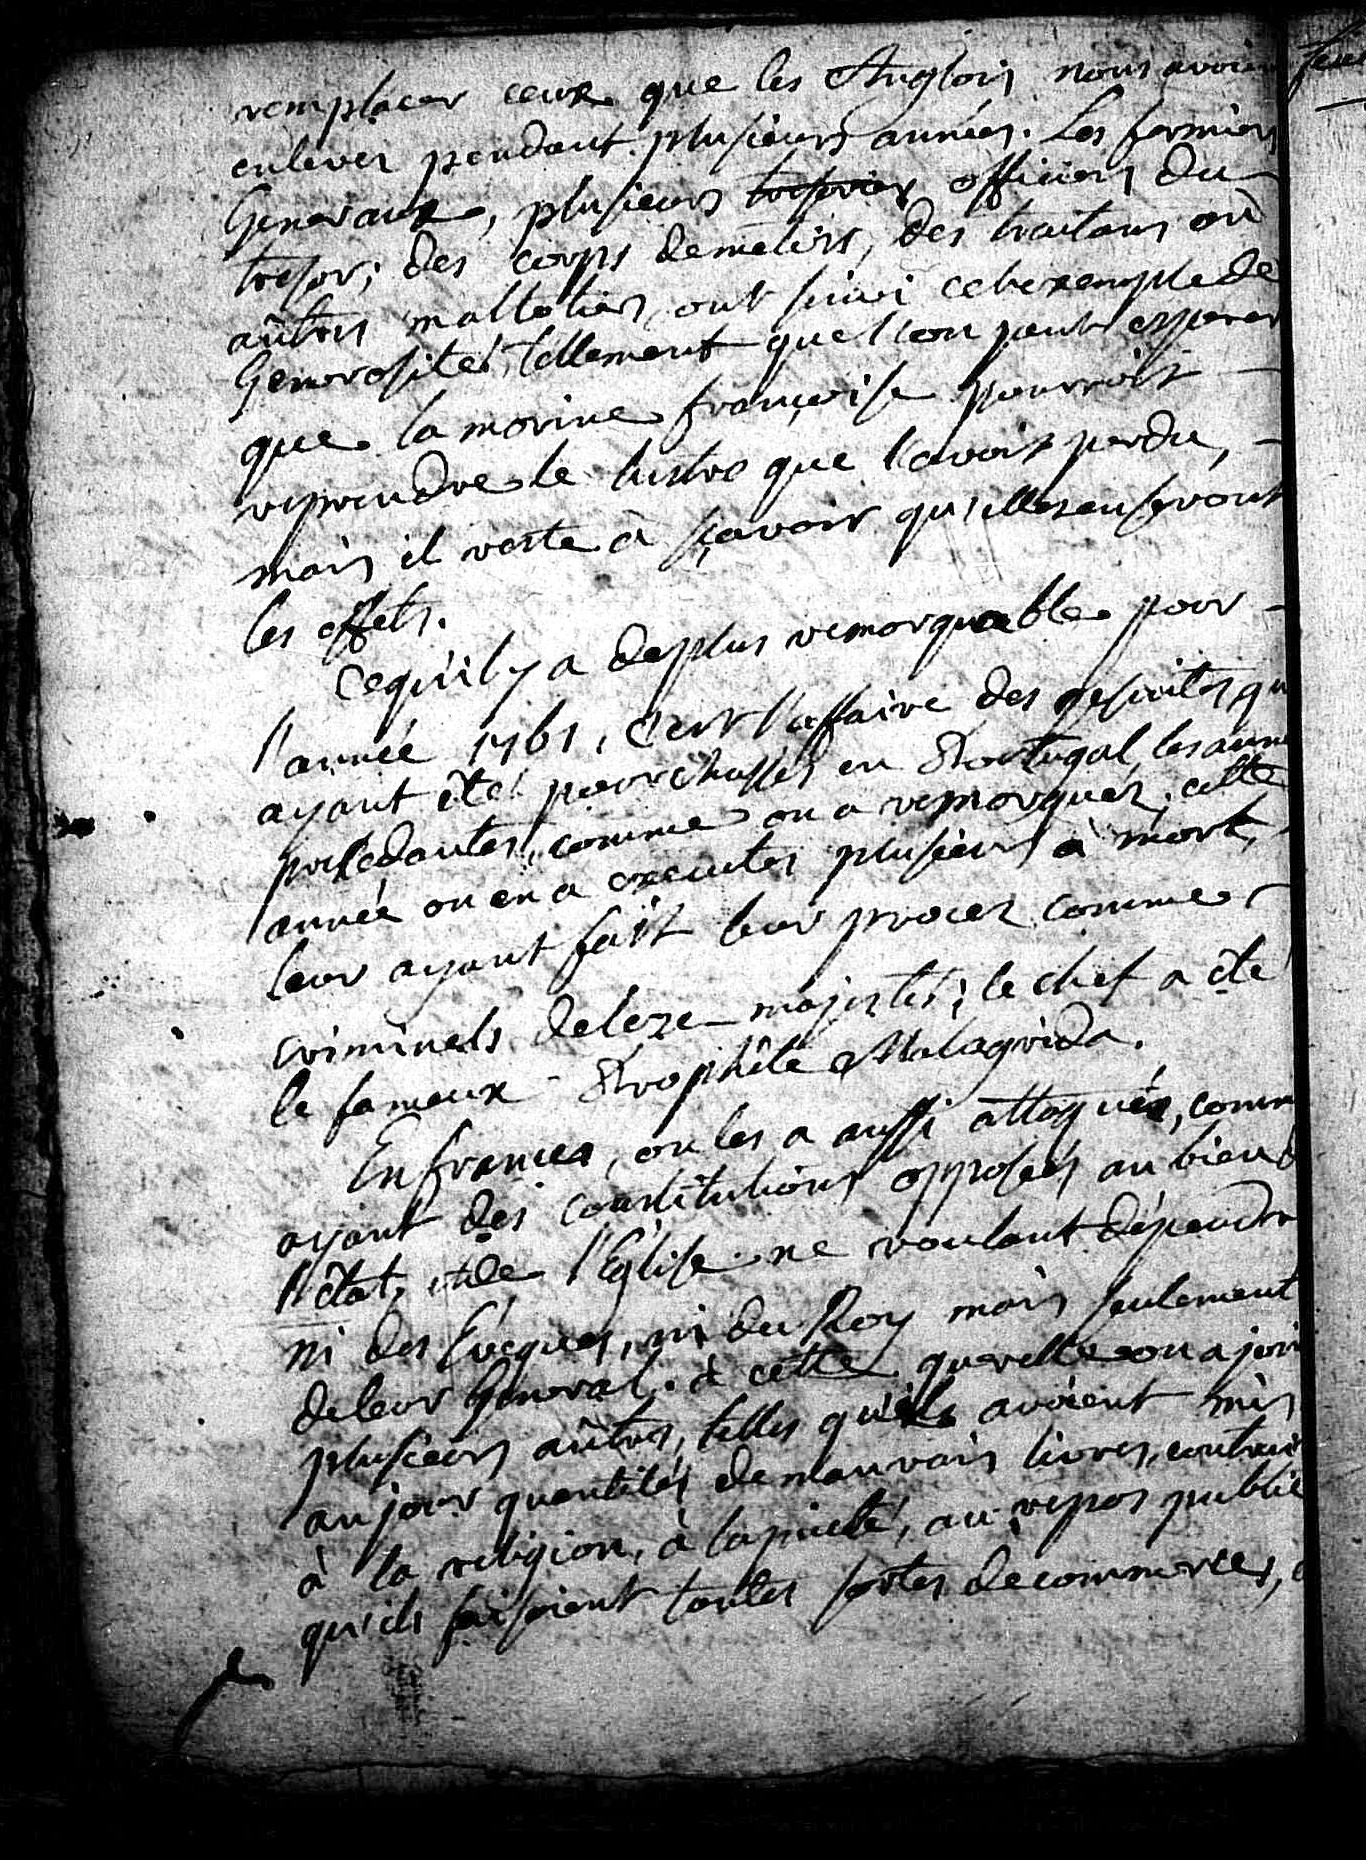 remplacer ceux que les Anglois nous avoien
enlevez pendant plusieurs années. Les fermiers
Generaux, plusieurs officiers du
tresor; des corps de metiers, des traitans ou
autres maltotiers, ont suivi cet exemple de
Generosité, tellement que l'on peut esperer
que la marine françoise pourroit
reprendre le lustre que l'avoit perdu,
mais il reste à sçavoir qu'elles en seront
les effets.
Ce qu'il y a de plus remarquable pour
l'année 1761, c'est l'affaire des jesuites, qu
ayant été pourchassés en Portugal, les anné
precedantes, comme on a remarquéz, cette
année on en a executes plusieurs à mort,
leur ayant fait leur procez comme
criminels de leze-majesté; le chef a été
le fameux Prophête Malagrida.
En france, on les a aussi attaquéz, comm
ayant des constitutions opposéés au bien d
l'état, et de l'Eglise. ne voulant dépendre
ni des Evêques, ni du Roy mais seulement
de leur General. à cette querelle on a join
plusieurs autres, telles qu'ils avoient mis
au jour quantités de mauvais livres, contrair
à la religion, à la pieté, au repos public
qu'ils faisoient toutes sortes de commerces,